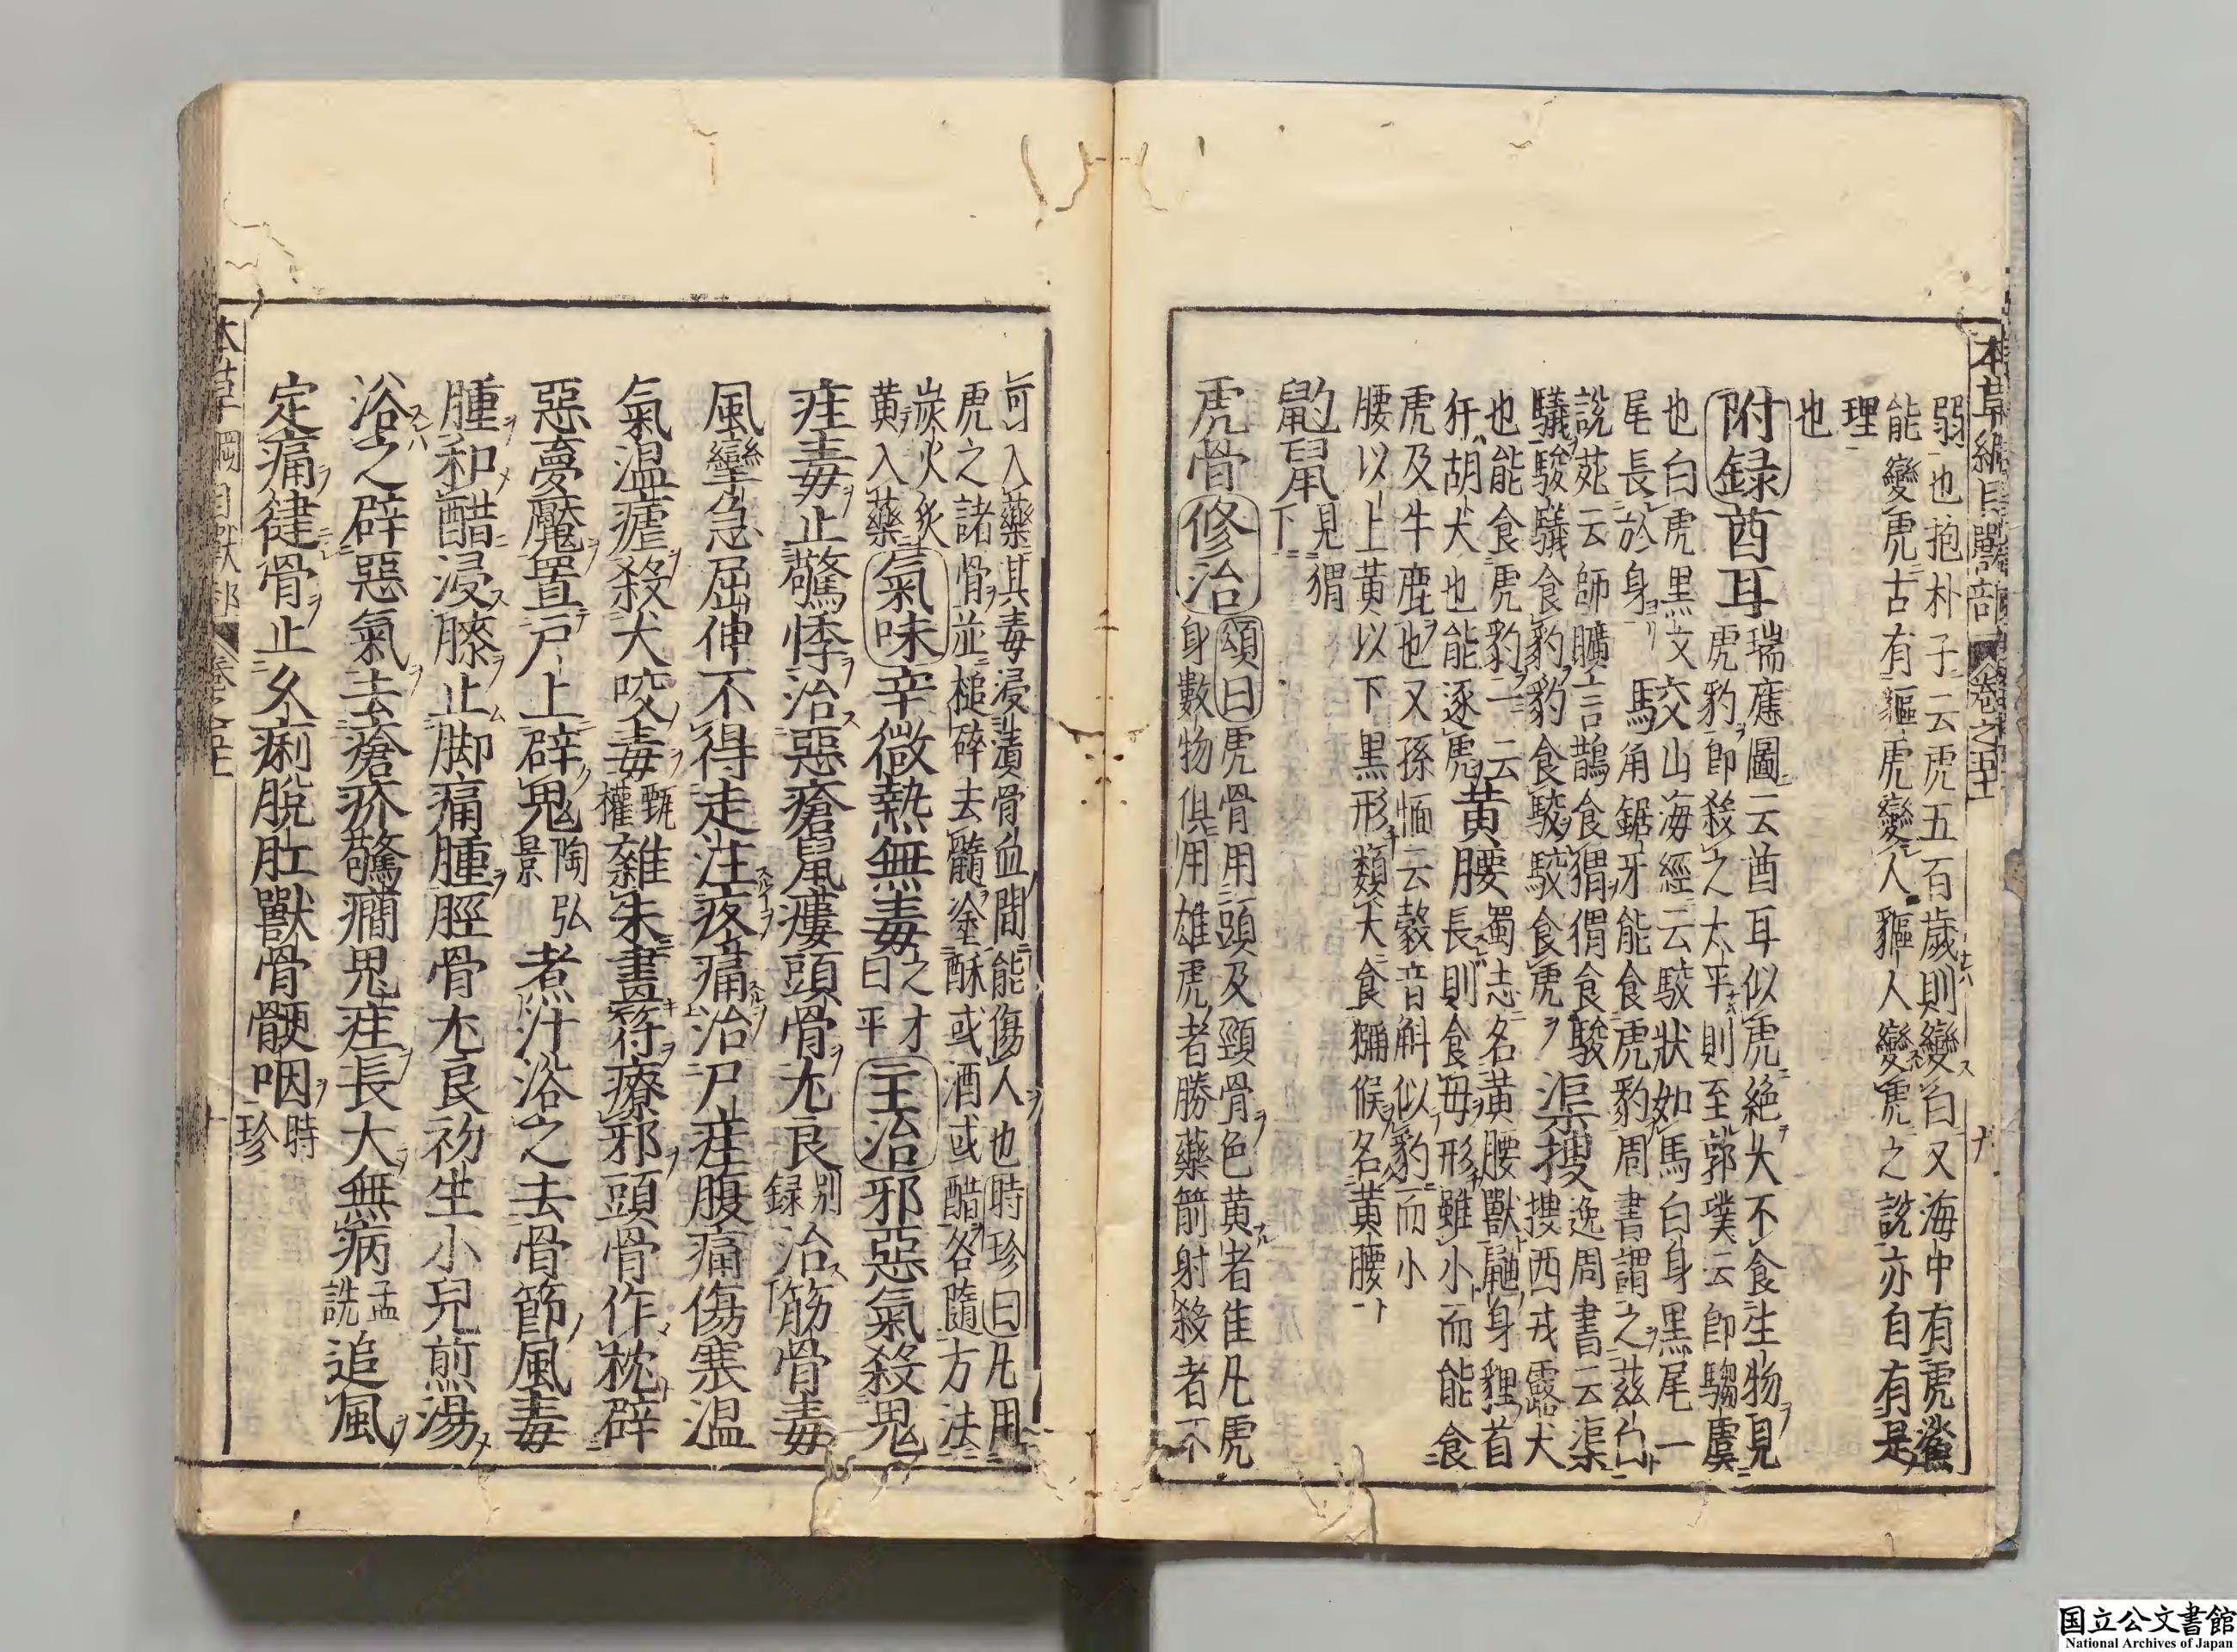 本草綱目獸部 卷之五十一
弱也抱朴子云虎五百歲則變白又海中有虎鯊
能變虎古有貙虎變人貙人變虎之說亦自有是
理
也
附録酋耳瑞應圖云酋耳似虎絶大不食生物見
虎豹即殺之太平則至郭璞云即騶虞
也白虎黑文交山海經云駮狀如馬白身黑尾一
尾長於身 駮角鋸牙能食虎豹周書謂之茲白
說苑云師曠言鵲食猬猬食駿
驥駿驥食豹豹食駮駮食虎 渠搜逸周書云渠
搜西戎露犬
也能食虎豹一云
犴胡犬也能逐虎 黄腰蜀志名黄腰獸鼬身貍首
長則食毋形雖小而能食
虎及牛鹿也又孫愐云豰音斛似豹而小
腰以上黄以下黑形類犬食獼猴名黄腰
鼩鼠見猬
下
虎骨修治頌曰虎骨用頭及頸骨色黄者佳凡虎
身數物俱用雄虎者勝藥箭射殺者不
可入藥其毒浸漬骨血間能傷人也時珍曰凡用
虎之諸骨並槌碎去髓塗酥或酒或醋各隨方法
炭火炙
黄入藥氣味辛微熱無毒之才
曰平主治邪惡氣殺鬼
疰毒止驚悸治惡瘡鼠瘻頭骨尤良别
録治筋骨毒
風攣急屈伸不得走注疼痛治尸疰腹痛傷寒温
氣温瘧殺犬咬毒甄
權雜朱畫符療邪頭骨作枕辟
惡夢魘置戸上辟鬼陶弘
景煮汁浴之去骨節風毒
腫和醋浸膝止脚痛腫脛骨尤良初生小兒煎湯
浴之辟惡氣去瘡疥驚癇鬼疰長大無病孟
詵追風
定痛健骨止久痢脫肛獸骨骾咽時
珍
本草綱目獸部 卷之五十一
国立公文書館
National Archives of Japan